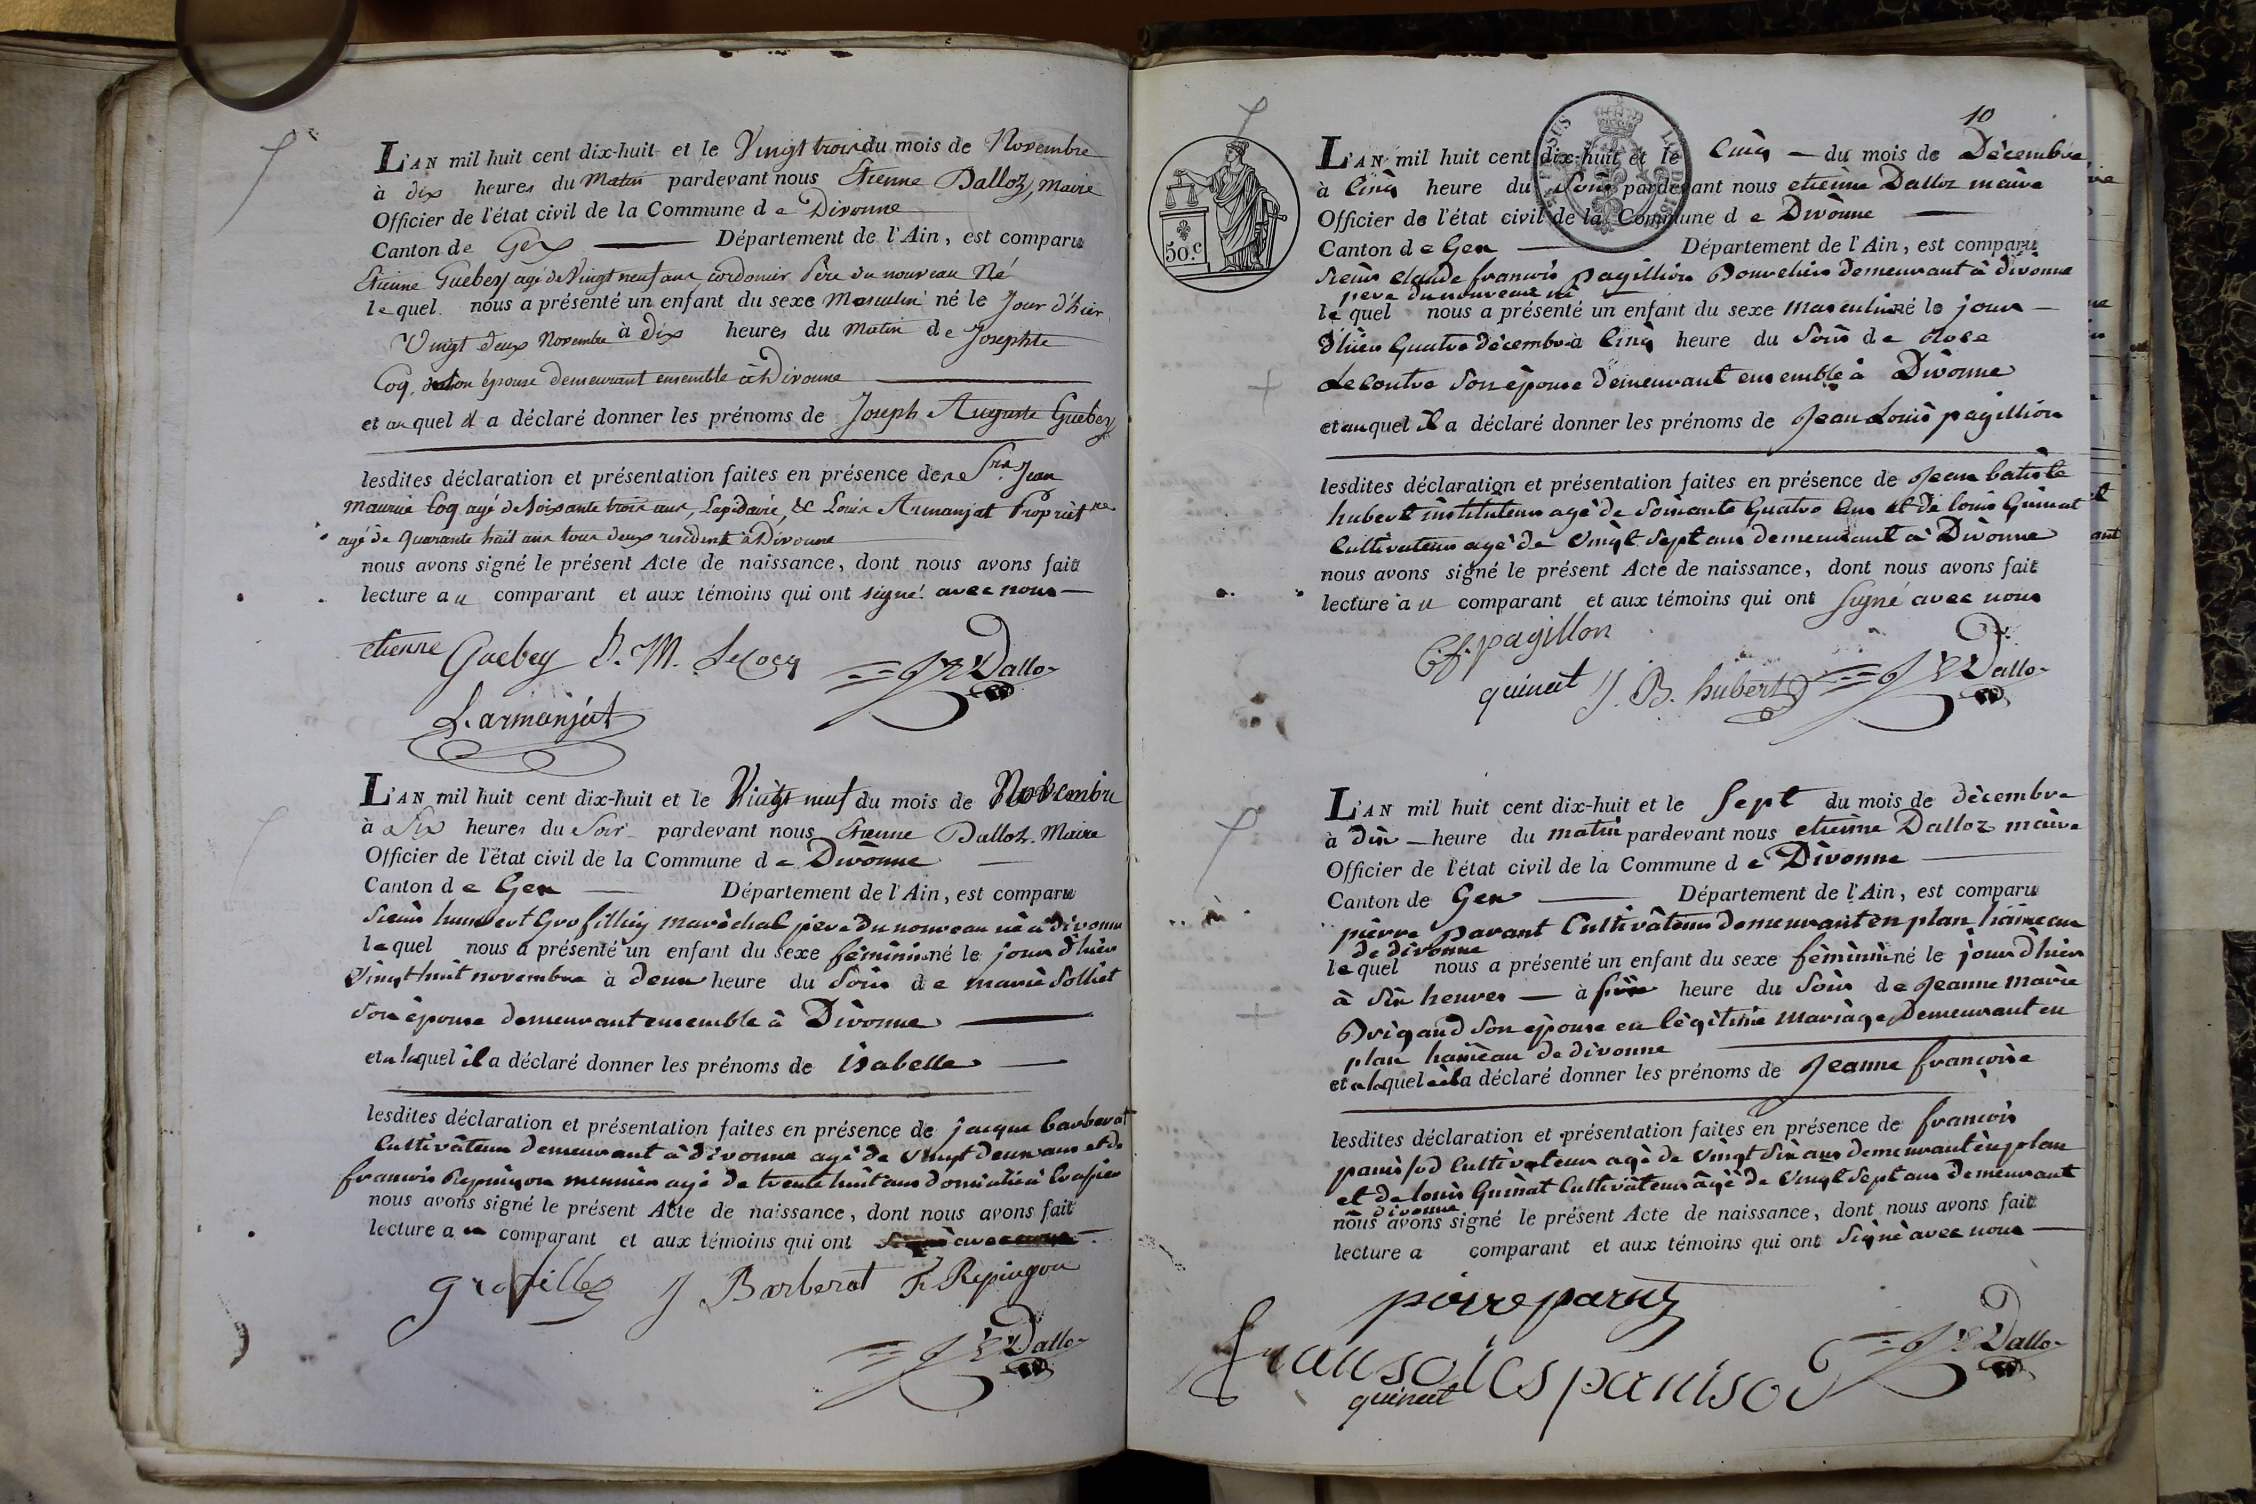 L'AN mil huit cent dix-huit et le Vingt trois du mois de Novembre
à dix heures du Matin pardevant nous Etienne Dalloz, Maire
Officier de l'état civil de la Commune d e Divonne
Canton de Gex Département de l'Ain, est comparu
Etienne Guebey agé de Vingt neuf ans, cordonier Père du nouveau Né
le quel nous a présenté un enfant du sexe Masculin né le Jour d'hier
Vingt deux Novembre à Dix heures du Matin de Josephte
Coq, son épouse demeurant ensemble à Divonne
et au quel il a déclaré donner les prénoms de Joseph Auguste Guebey
lesdites déclaration et présentation faites en présence de Jean
Maurice Coq agé de Soixante trois ans, Lapidaire, & Louis Armanjat Propriét.re
agé de quarante huit ans tous deux résident à Divonne
nous avons signé le présent Acte de naissance, dont nous avons fait
lecture a u comparant et aux témoins qui ont signé avec nous
etienne Guebey J. M. LeCocq Dalloz
L. armanjat
L'AN mil huit cent dix-huit et le Vingt neuf du mois de Novembre
à Six heures du Soir pardevant nous Etienne Dalloz. Maire
Officier de l'état civil de la Commune d e Divonne
Canton d e Gex Département de l'Ain, est comparu
Sieur humbert Grosfilley maréchal pere du nouveau né à divonne
le quel nous a présenté un enfant du sexe féminin né le jour d'hier
Vingt huit novembre à deux heure du Soir de marie Solliet
Son épouse demeurant ensemble à Divonne
et a laquel il a déclaré donner les prénoms de isabelle
lesdites déclaration et présentation faites en présence de jacque barberat
Cultivateur demeurant à divonne agé de vingt deux ans et de
francois Repingon meunier agé de trente huit ans domicilié à Crassier
nous avons signé le présent Acte de naissance, dont nous avons fait
lecture a u comparant et aux témoins qui ont signé avec nous
J Barberat F Repingon
Dalloz
10
50.c
L'AN mil huit cent dix-huit et le Cinq du mois de Décembre
à Cinq heure du Soir pardevant nous etienne Dalloz maire
Officier de l'état civil de la Commune d e Divonne
Canton d e Gex Département de l'Ain, est comparu
Sieur claude francois pagillion Bourelier demeurant à divonne
pere du nouveau né
le quel nous a présenté un enfant du sexe Masculin né le jour
d'hier Quatre décembre à Cinq heure du Soir de Rose
Lecontre Son épouse demeurant ensemble à Divonne
et auquel Il a déclaré donner les prénoms de Jean Louis pagillion
lesdites déclaration et présentation faites en présence de Jean batiste
hubert instituteur agé de Soixante Quatre ans et de louis Guinat
Cultivateur agé de vingt Sept ans demeurant à Divonne
nous avons signé le présent Acte de naissance, dont nous avons fait
lecture a u comparant et aux témoins qui ont Signé avec nous
C. f. pagillon
quinat J. B. hubert Dalloz
L'AN mil huit cent dix-huit et le Sept du mois de décembre
à Dix heure du matin pardevant nous etienne Dalloz maire
Officier de l'état civil de la Commune d e Divonne
Canton de Gex Département de l'Ain, est comparu
pierre pavant Cultivateur demeurant en plan hameau
de divonne
le quel nous a présenté un enfant du sexe féminin né le jour d'hier
à Six heures à heure du Soir de Jeanne Marie
Brigand Son épouse en légitime mariage, Demeurant en
plan hameau de divonne
et a laquel il a déclaré donner les prénoms de Jeanne francoise
lesdites déclaration et présentation faites en présence de francois
panissod Cultivateur agé de vingt Six ans demeurant en plan
et de louis Guinat Cultivateur agé de vingt Sept ans demeurant
divonne
nous avons signé le présent Acte de naissance, dont nous avons fait
lecture a comparant et aux témoins qui ont Signé avec nous
Dalloz
fransoies paniso
quinat